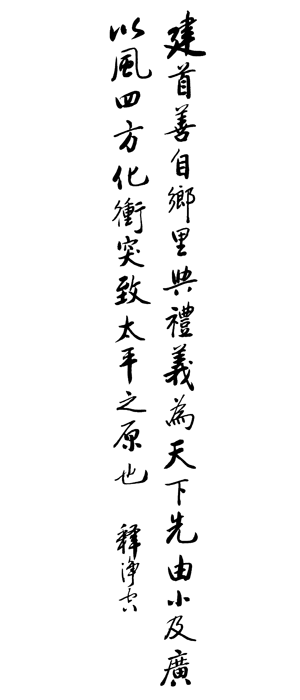 建首善自鄉里興禮義為天下先由小及廣
以風四方化衝突致太平之原也
釋淨空